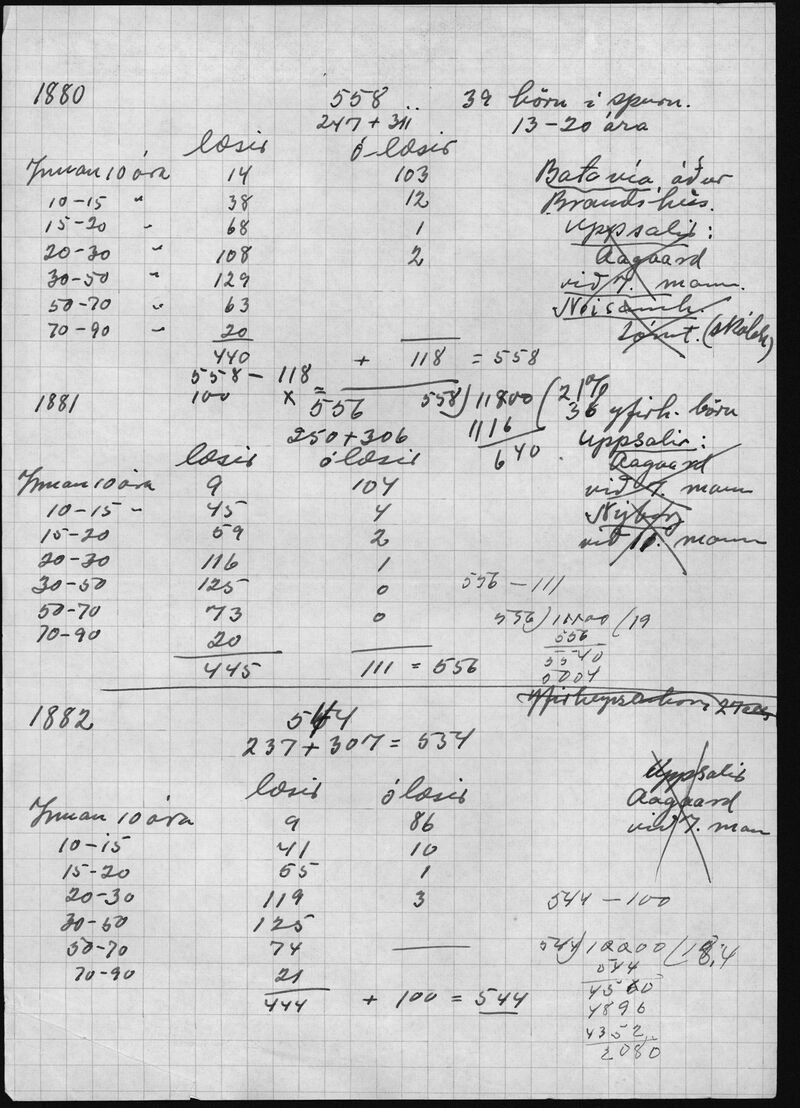 1880 558 39 börn í spurn.
247 + 311 13-20 ára
læsir ólæsir
Innan 10 ára 14 103 Batavía, áður
10-15 " 38 12 Brandshús.
15-20 " 68 1 Uppsalir:
20-30 " 108 2 Aagaard
30-50 " 129 við 7. mann.
50-70 " 63
70-90 " 20
440 + 118 = 558
558 - 118
100 x = 558) 11800 (21%
1881 556 1116 36 yfirh. börn
250 + 306 640 Uppsalir:
læsir ólæsir Aagaard
Innan 10 ára 9 104 við 7. mann
10-15 " 45 4 Nýborg
15-20 59 2 við 11. mann
20-30 116 1
30-50 125 0 556 - 111
50-70 73 0 556) 11100 (19
70-90 20 556
445 111 = 556 5540
5004
1882 544
237 + 307 = 534
læsir ólæsir Uppsalir
Innan 10 ára 9 86 Aagaard
10-15 41 10 við 7. man
15-20 55 1
20-30 119 3 544 - 100
30-50 125
50-70 74 544) 10000 (18,4
70-90 21 544
444 + 100 = 544 4560
4896
4352
2080